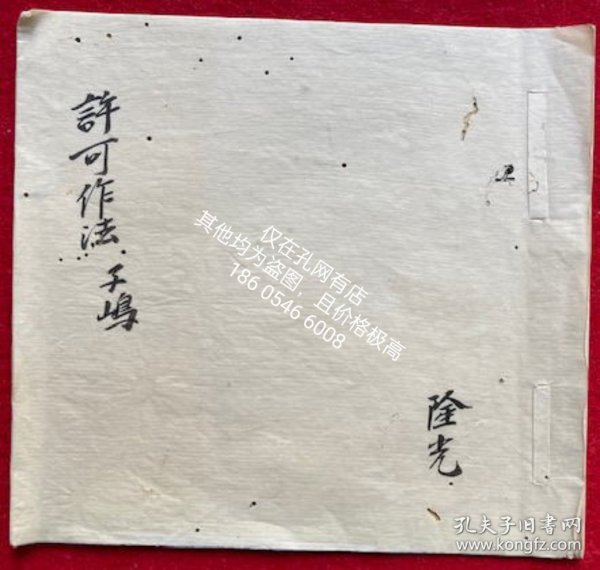 許可作法 子嶋
隆光
仅在孔网有店
其他均为盗图，且价格极高
186 0546 6008
孔夫子旧书网
www.kongfz.com